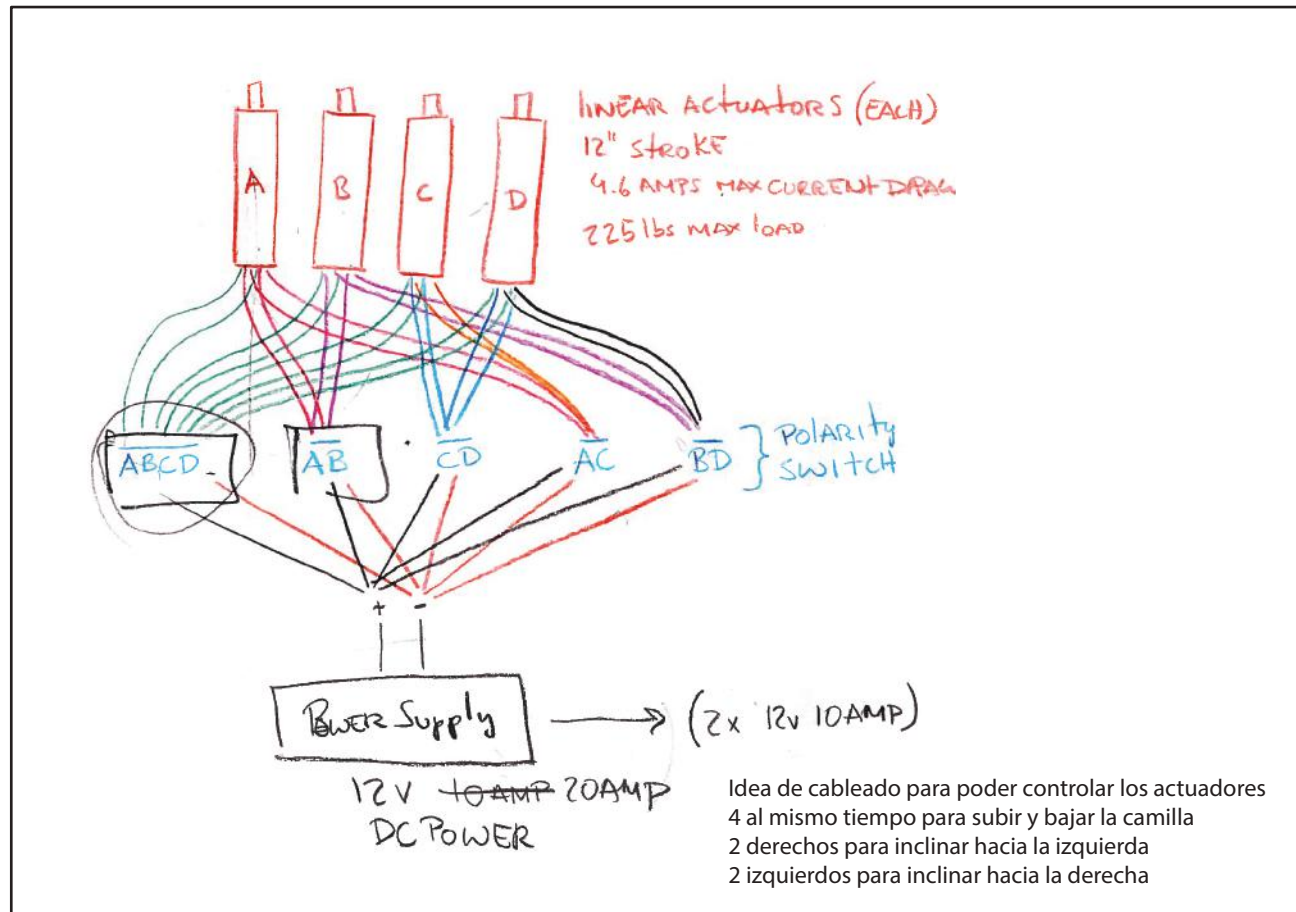 LINEAR ACTUATORS (EACH)
12" STROKE
4.6 AMPS MAX CURRENT DRAG
225 lbs MAX LOAD
A B C D
ABCD AB CD AC BD } POLARITY SWITCH
+ -
POWER Supply → (2x 12v 10AMP)
12V 10AMP 20AMP
DC POWER
Idea de cableado para poder controlar los actuadores
4 al mismo tiempo para subir y bajar la camilla
2 derechos para inclinar hacia la izquierda
2 izquierdos para inclinar hacia la derecha